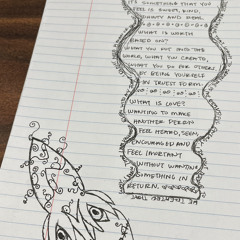 IT'S SOMETHING THAT YOU
FEEL IS SWEET, KIND,
BEAUTY AND MORE.
WHAT IS WORTH
BASED ON?
WHAT YOU PUT INTO THE
WORLD, WHAT YOU CREATE,
WHAT YOU DO FOR OTHERS
BY BEING YOURSELF
IN TRUEST FORM.
WHAT IS LOVE?
WANTING TO MAKE
ANOTHER PERSON
FEEL HEARD, SEEN,
ENCOURAGED AND
FEEL IMPORTANT
WITHOUT WANTING
SOMETHING IN
RETURN.
THAT